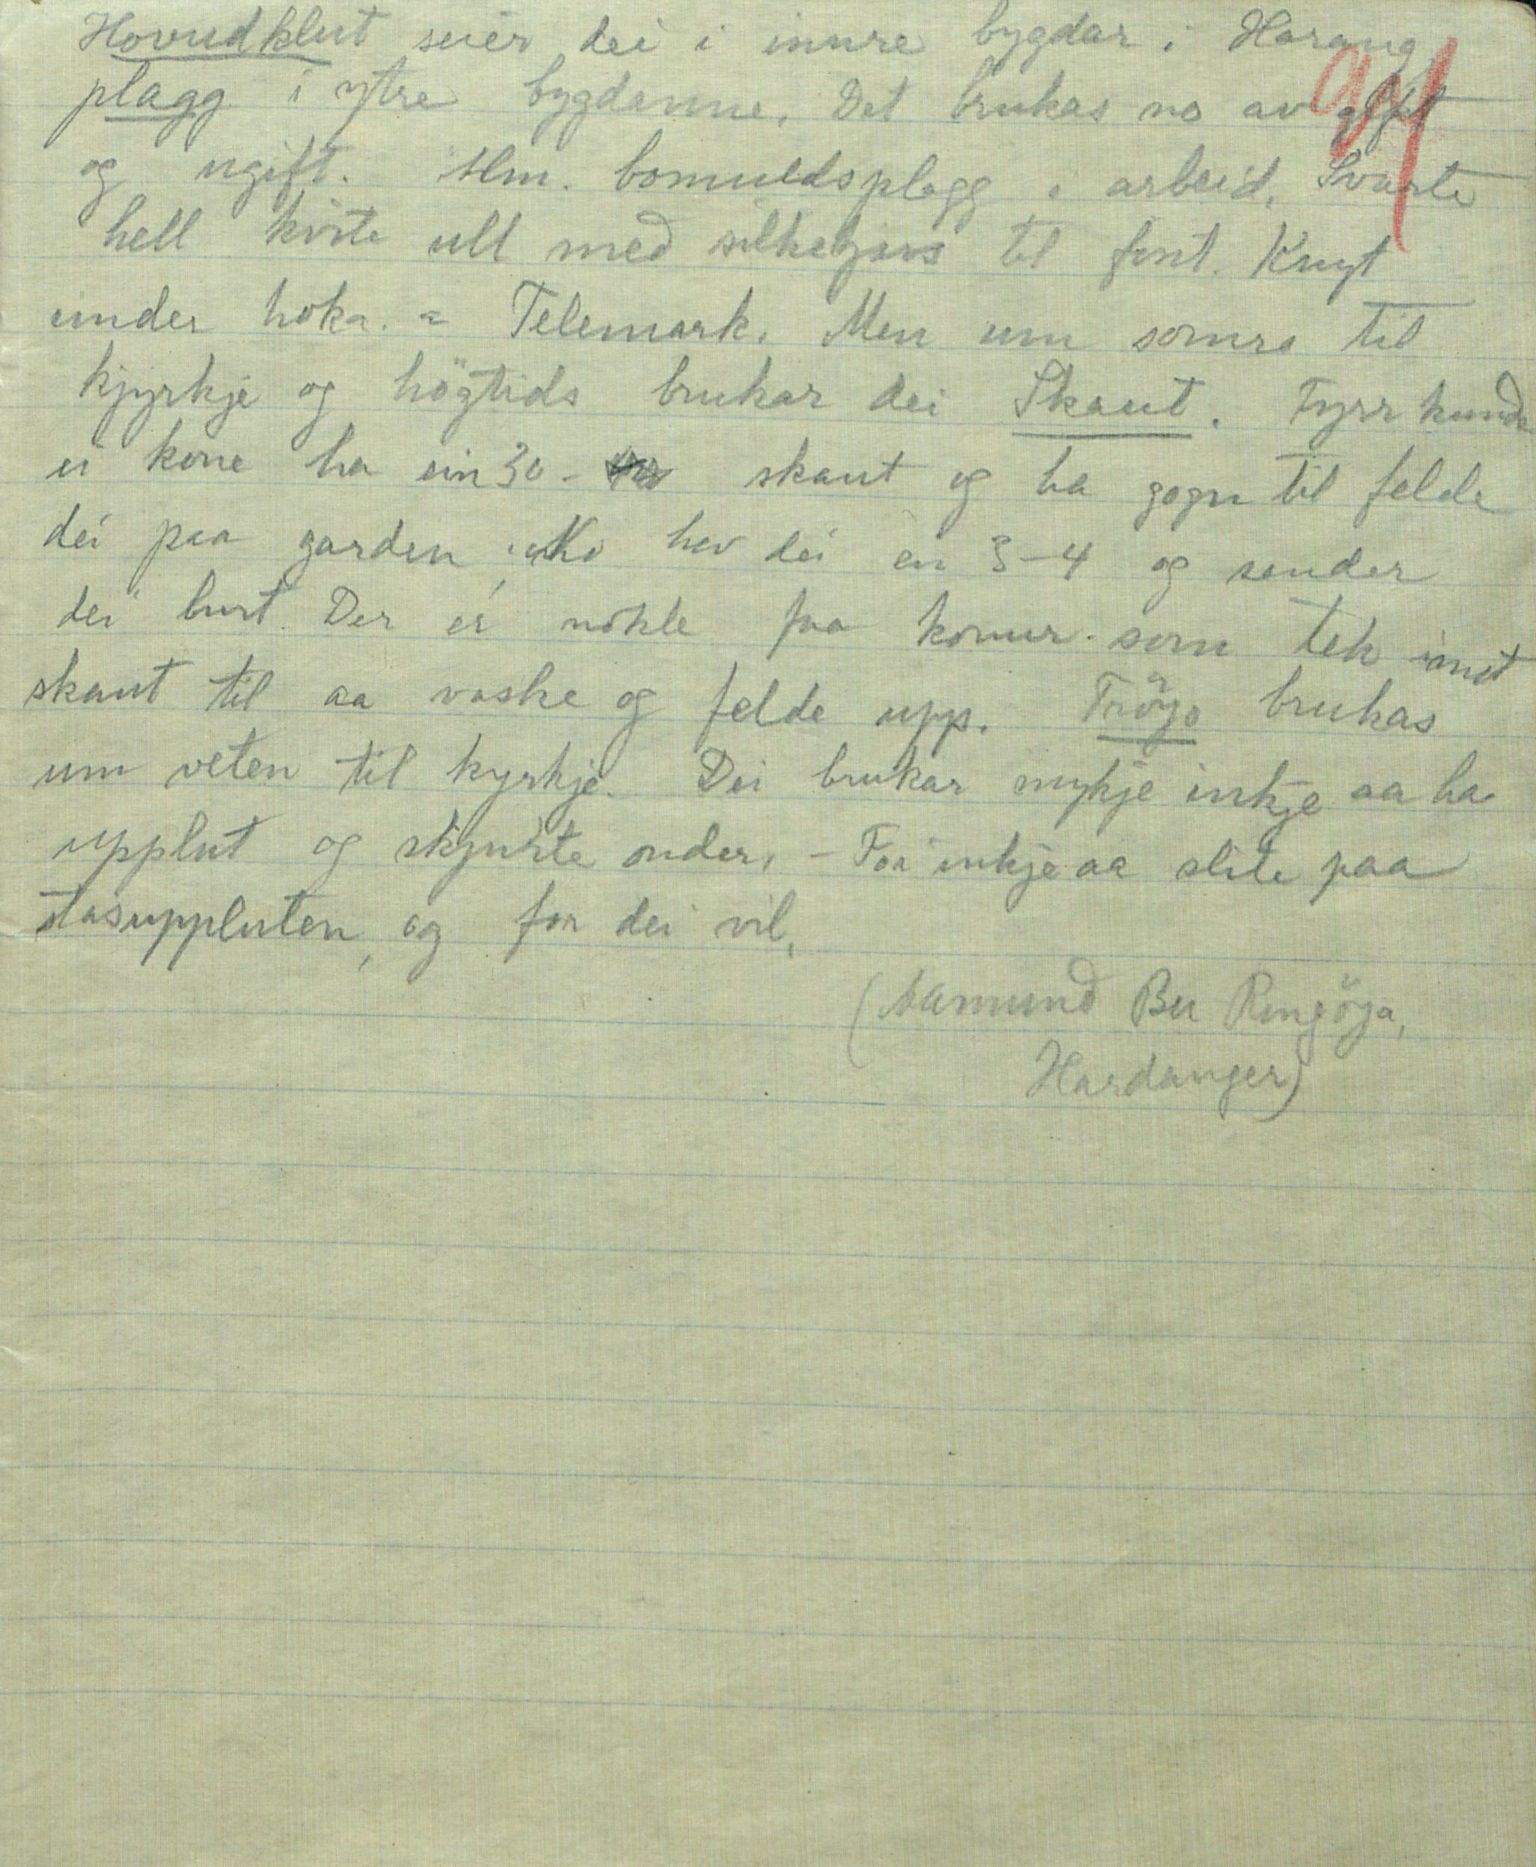 Hovudklut seier dei i innre bygdar i Harang,
plagg i ytre bygdanne. Det brukas no av gift
og ugift. Alm. bomuldsplagg i arbeid. Svarte
hell kvite ull med silkegars til fint. Knyt
under hoka. = Telemark. Men um somra til
kjyrkje og högtids brukar dei Skaut. Fyrr kunde
ei kone ha ein 30 - skaut og ha gogn til felde
dei paa garden, No hev dei en 3-4 og sender
dei burt. Der er nokle faa konur som tek imot
skaut til aa vaske og felde upp. Tröga brukas
um veten til kyrkje. Dei brukar mykje inkje aa ha
upplut og skjurte onder, - Foi inkje aa slite paa
stasuppluten, og foi dei vil.
(Aamund Bu Ringöya,
Hardanger)
94